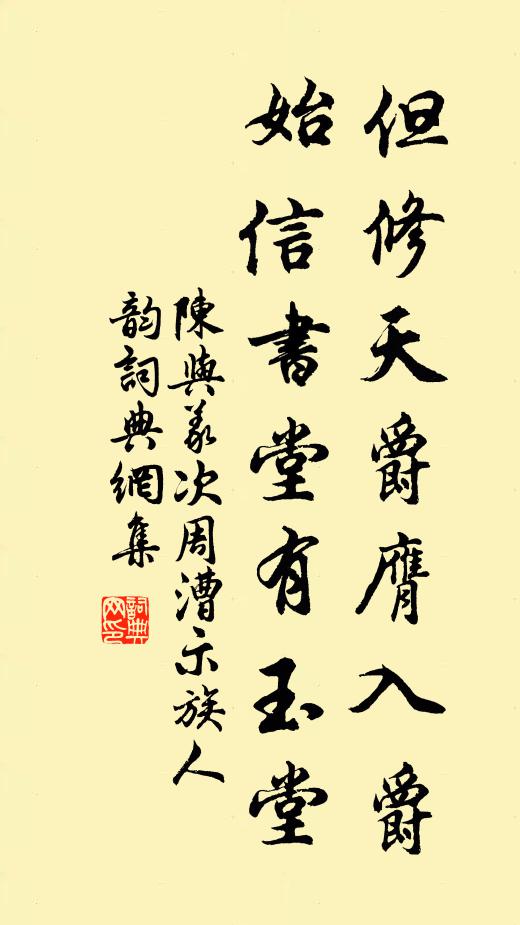 但修天爵膺入爵
始信書堂有玉堂
陳與義次周漕示族人
韵詞典網集
詞典网印